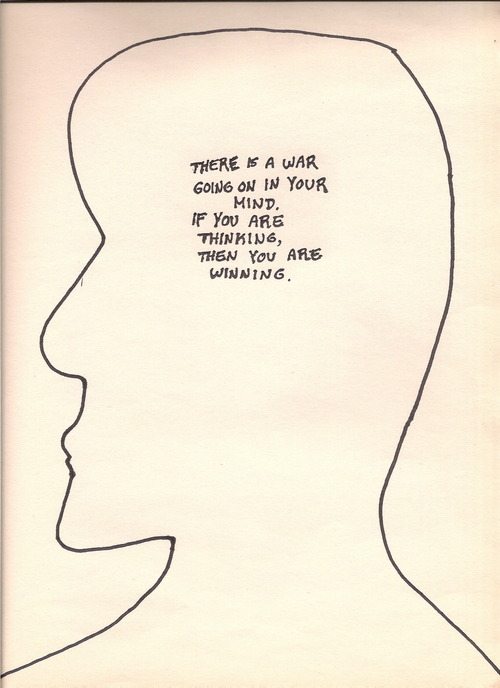 THERE IS A WAR
GOING ON IN YOUR
MIND.
IF YOU ARE
THINKING,
THEN YOU ARE
WINNING.